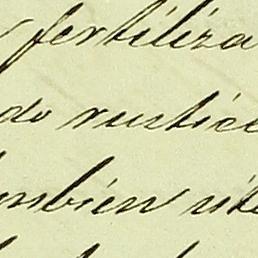 fertiliza
do rustice
mbien úti